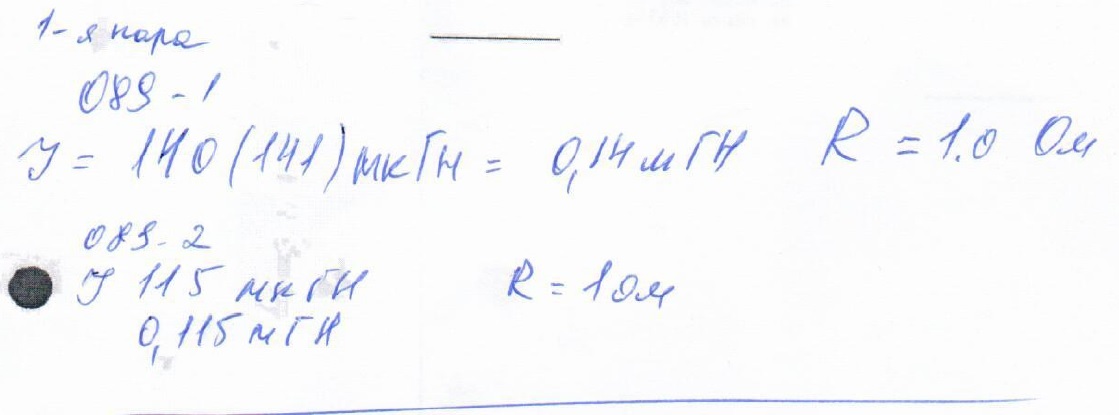 1-я пара
089-1
У = 140(141) мкГн = 0,14 мГН R = 1.0 Ом
089-2
У 115 мкГН R = 1 ом
0,115 мГН